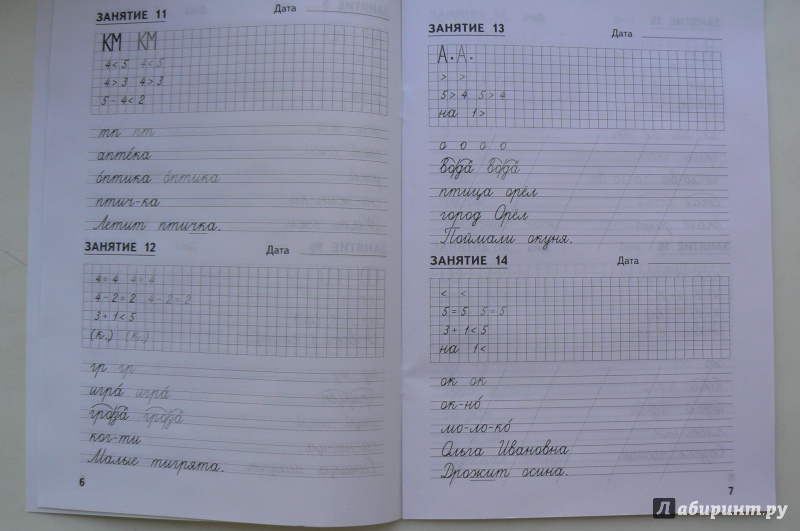 ЗАНЯТИЕ 11 Дата
КМ КМ
4 < 5 4 < 5
4 > 3 4 > 3
5 - 4 < 2
тп пт
апте́ка
о́птика о́птика
птич-ка
Летит птичка.
ЗАНЯТИЕ 12 Дата
4 = 4 4 = 4
4 - 2 = 2 4 - 2 = 2
3 + 1 < 5
(к.) (к.)
гр гр
игра́ игра́
гроза́ гроза́
ког-ти
Малые тигрята.
6
ЗАНЯТИЕ 13 Дата
А. А.
> >
5 > 4 5 > 4
на 1 >
о о о о
вода́ вода́
птица орёл
город Орёл
Поймали окуня.
ЗАНЯТИЕ 14 Дата
< <
5 = 5 5 = 5
3 + 1 < 5
на 1 <
ок ок
ок-но́
мо-ло-ко́
Ольга Ивановна
Дрожит осина.
7
Лабиринт.ру